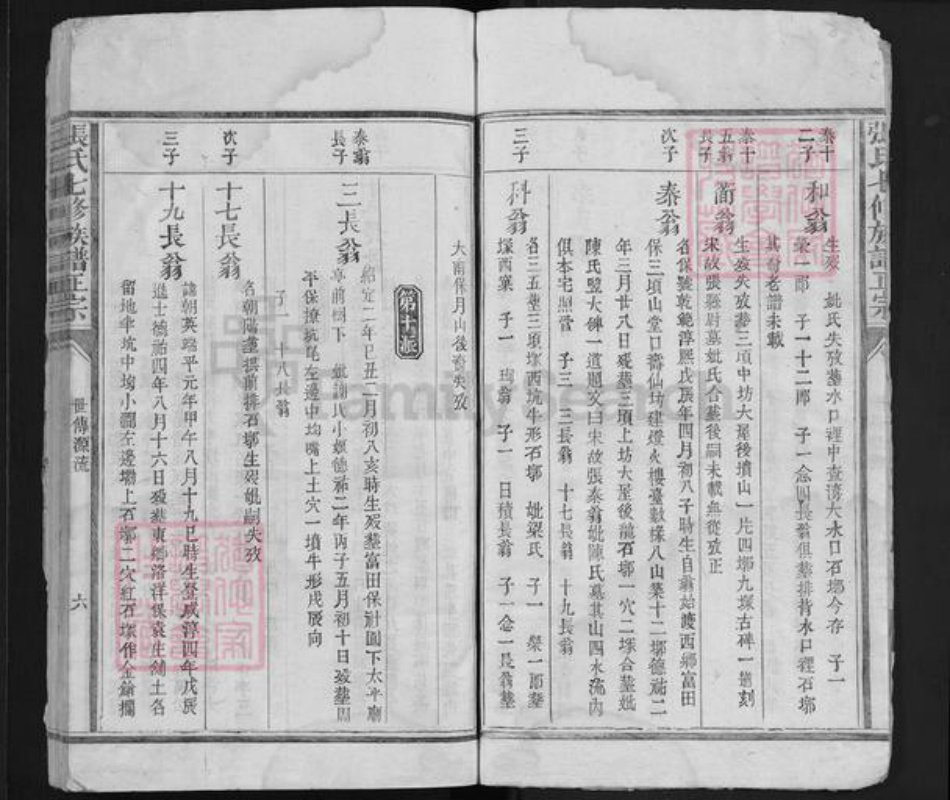 張氏七修族譜正宗
泰十二子 和翁 生歿 妣氏失攷葬水口裡中查灣大水口石墎今存 子一
榮一郎 子一十二郎 子一念四長翁俱葬排背水口裡石墎
其奇老譜未載
泰十五翁長子 蘭翁 生歿失攷葬三頃中坊大屋後墳山一片四墎九塚古碑一道刻
宋故張縣尉墓妣氏合葬後嗣未載無從攷正
次子 泰翁 名保號乾範淳熙戊辰年四月初八子時生自翁始渡西鄉富田
保三項山堂口齋仙坊建燈火樓臺數椽八山築十二墎德祐二
年三月廿八日歿葬三頃上坊大屋後龍石墎一穴二塚合葬妣
陳氏豎大碑一道題文曰宋故張泰翁妣陳氏墓其山四水流內
俱本宅照管 子三 三長翁 十七長翁 十九長翁
三子 科翁 名三五葬三頃塚西坑牛形石墎 妣梁氏 子一 榮一郎葬
塚西窠 子一 瑀翁 子一 日積長翁 子一念一長翁葬
大南保月山後裔失攷
第十派
泰翁長子 三長翁 紹定二年己丑二月初八亥時生歿葬富田保社圓下太平廟
亭前樹下 妣謝氏小娘德祐二年丙子五月初十日歿葬
平保撩坑尾左邊中坳嘴上土穴一墳牛形戌辰向
子一 十八長翁
次子 十七長翁 名朝陽葬拱前排石墎生歿妣嗣失攷
三子 十九長翁 諱朝英端平元年甲午八月十九巳時生登咸淳四年戊辰
進士德祐四年八月十六日歿葬東鄉洛洋保袁生舖土名
留地牛坑中坳小澗左邊塝上石墎二穴紅石塚作金
張氏七修族譜正宗
世傳源流
六